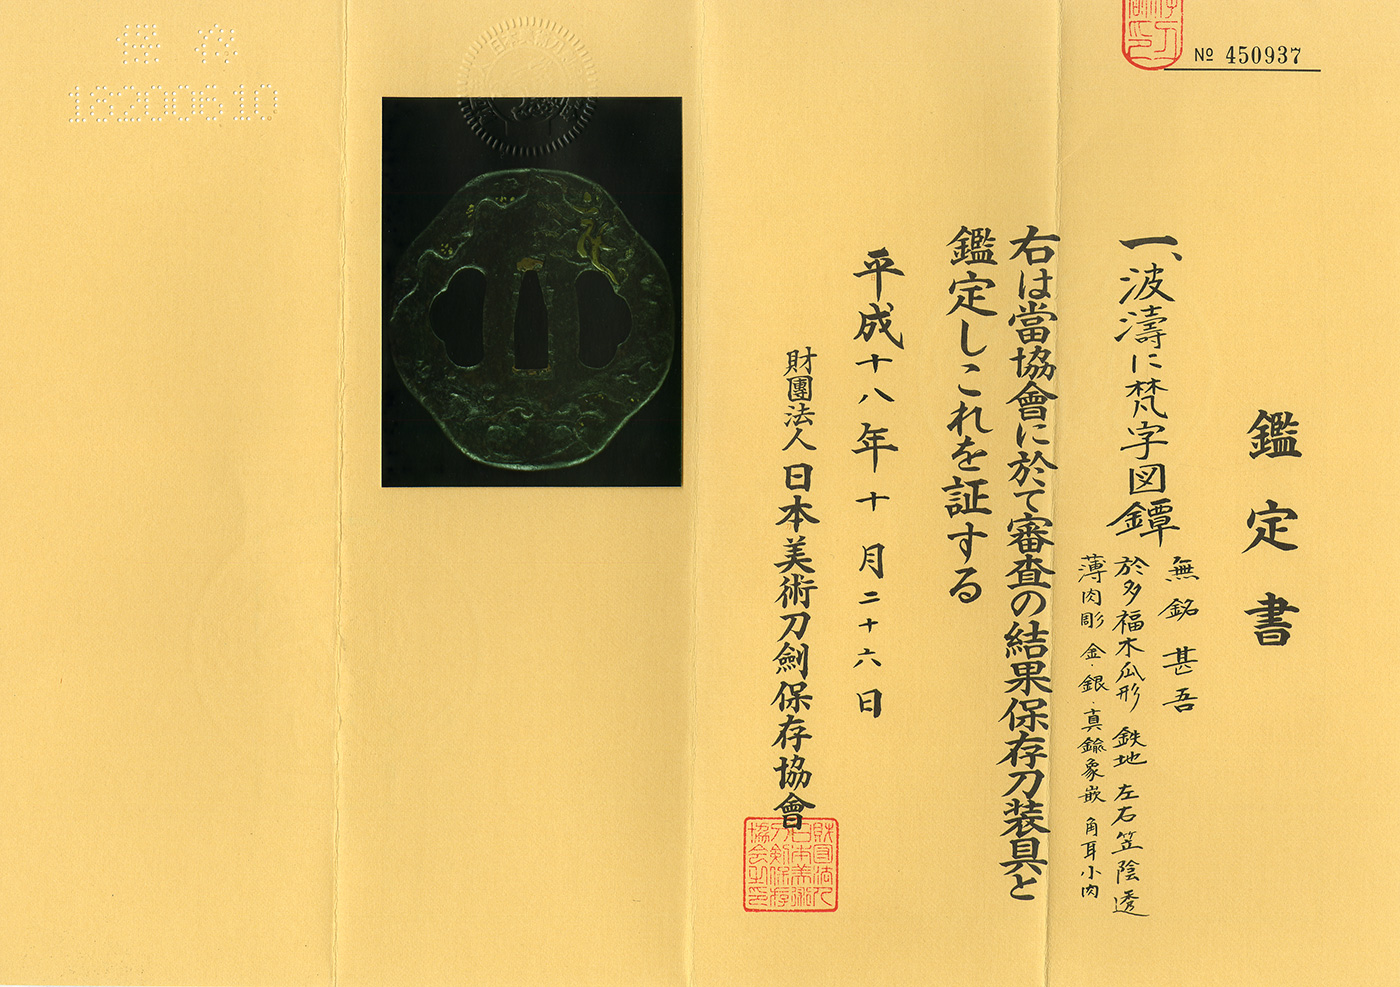 № 450937
鑑定書
一、波濤に梵字図鐔
無銘 甚吾
於多福木瓜形 鉄地 左右笠陰透
薄肉彫 金・銀・真鍮象嵌 角耳小肉
右は當協會に於て審査の結果保存刀装具と
鑑定しこれを証する
平成十八年十月二十六日
財團法人日本美術刀劍保存協會
財団法人
日本美術
刀剣保存
協会之印
保存
18200610